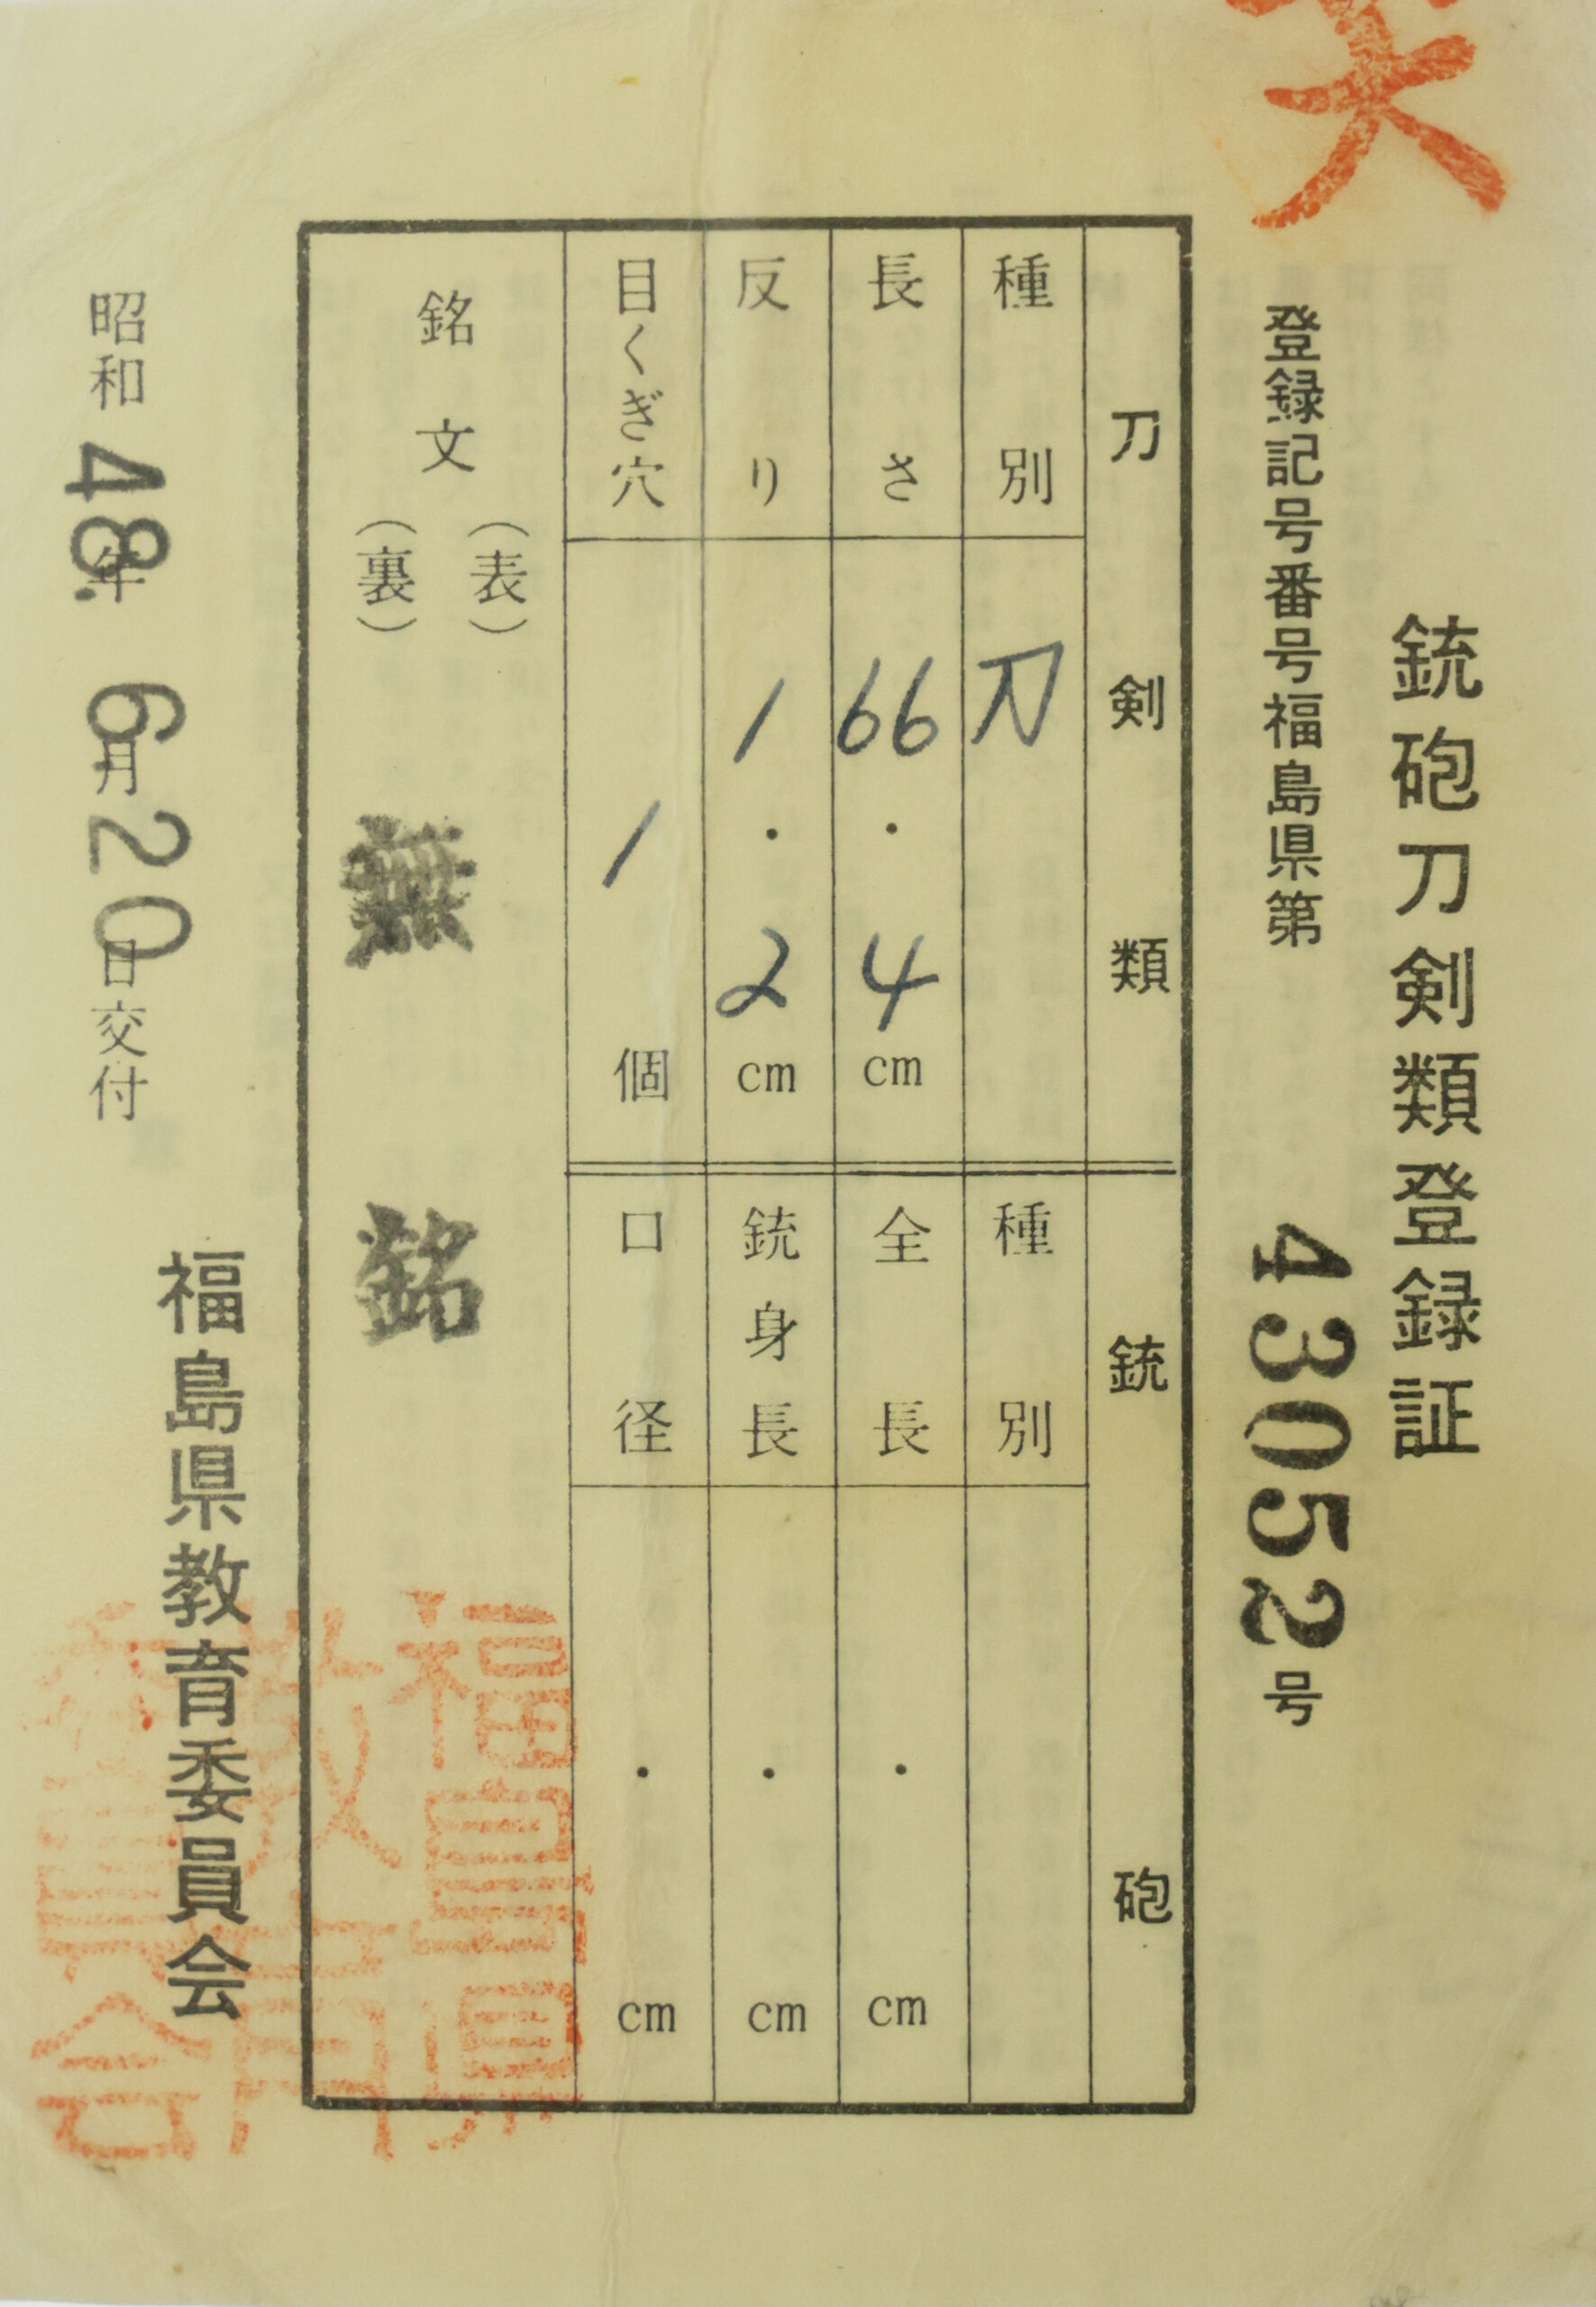 銃砲刀剣類登録証
登録記号番号福島県第 43052号
刀剣類
種別 刀
長さ 66.4cm
反り 1.2cm
目くぎ穴 1個
銃砲
種別
全長 . cm
銃身長 . cm
口径 . cm
銘文
(表)
(裏)
無銘
昭和48年6月20日交付
福島県教育委員会
福島県
教育
委員会